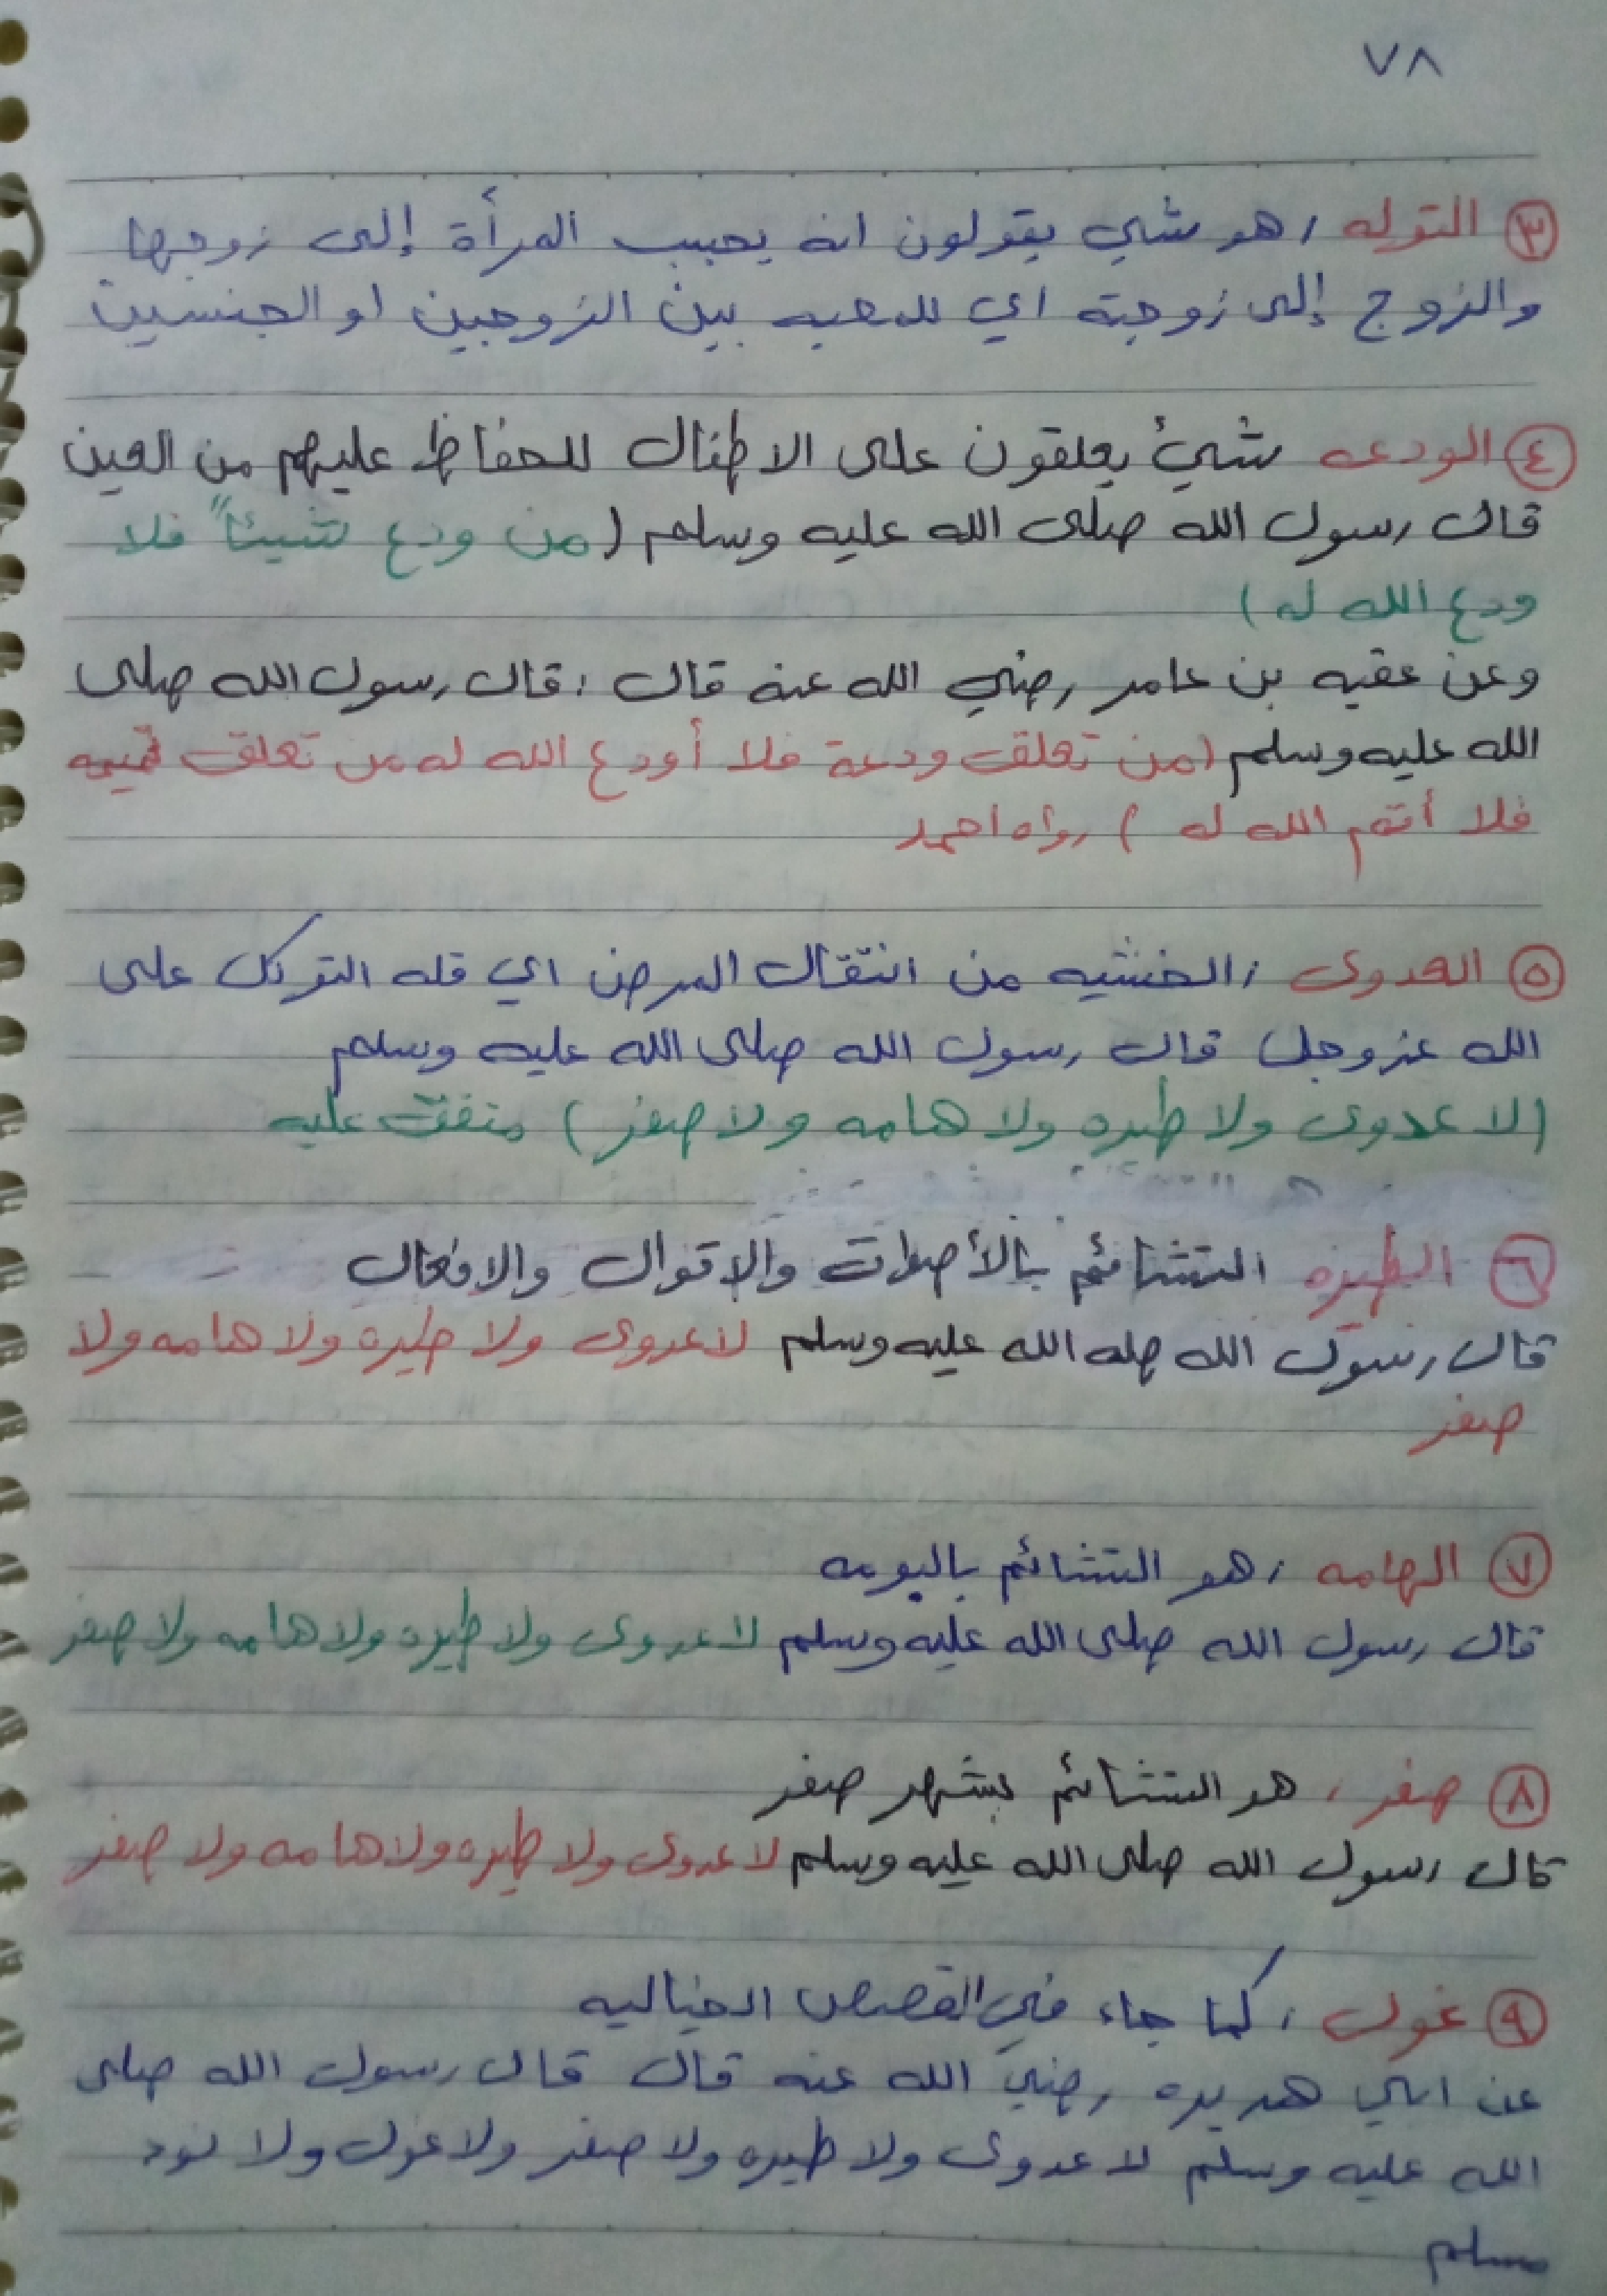 ٧٨
٣ التوله : هو شي يقولون انه يحبب المرأة إلى زوجها
والزوج إلى زوجته اي للمحبه بين الزوجين او الجنسين
٤ الودعه شيئ يعلقون على الاطفال للحفاظ عليهم من العين
قال رسول الله صلى الله عليه وسلم (من ودع شيئاً فلا
ودع الله له)
وعن عقبه بن عامر رضي الله عنه قال : قال رسول الله صلى
الله عليه وسلم (من تعلق ودعة فلا أودع الله له من تعلق تميمه
فلا أتم الله له) رواه احمد
٥ العدوى : الخشيه من انتقال المرض اي قله التوكل على
الله عزوجل قال رسول الله صلى الله عليه وسلم
(لا عدوى ولا طيره ولا هامه ولا صفر) متفق عليه
٦ الطيره التشائم بالأصوات والاقوال والافعال
قال رسول الله صله الله عليه وسلم لا عدوى ولا طيره ولا هامه ولا
صفر
٧ الهامه : هو التشائم بالبومه
قال رسول الله صلى الله عليه وسلم لا عدوى ولا طيره ولا هامه ولا صفر
٨ صفر : هو التشائم بشهر صفر
قال رسول الله صلى الله عليه وسلم لا عدوى ولا طيره ولا هامه ولا صفر
٩ غول : كما جاء في القصص الخياليه
عن ابي هريره رضي الله عنه قال قال رسول الله صلى
الله عليه وسلم لا عدوى ولا طيره ولا صفر ولا غول ولا نوء
مسلم